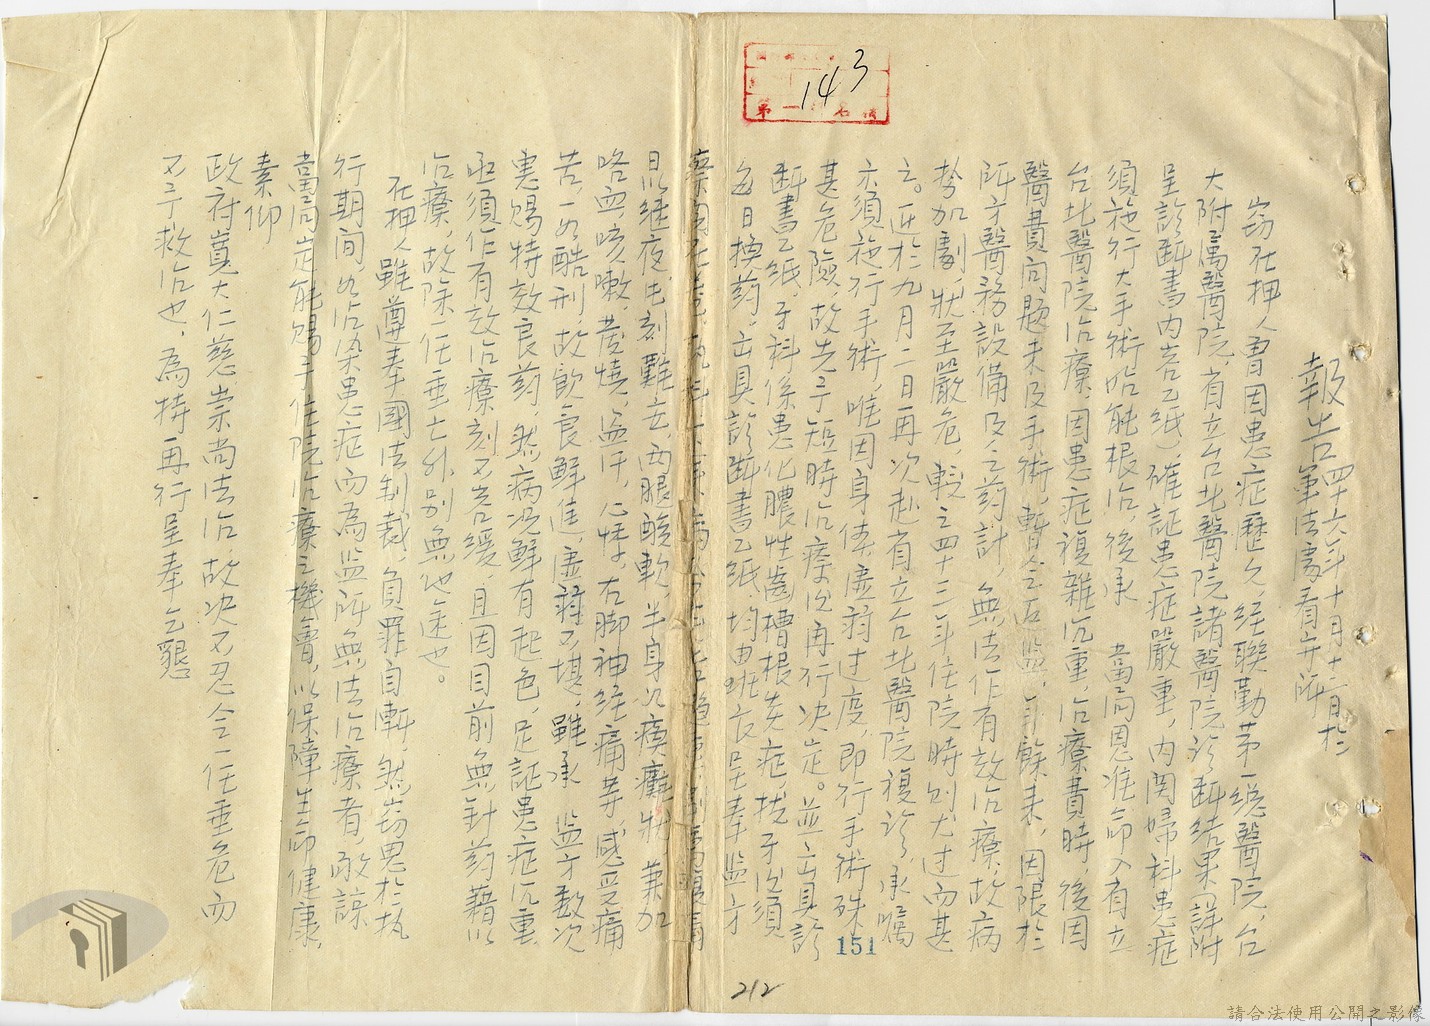 143
報告 四十六年十月十二日於
軍法處看守所
竊在押人曾因患症歷久,經聯勤第一總醫院,台
大附屬醫院,省立台北醫院諸醫院診斷結果(詳附
呈診斷書內容乙紙),確証患症嚴重,內関婦科患症
須施行大手術始能根治,後承 當局恩准命入省立
台北醫院治療,因患症複雜沉重,治療費時,後因
醫費問題未及手術,暫令返監,年餘來,因限於
所方醫務設備及乏葯計,無法作有效治療,故病
勢加劇,狀至嚴危,較之四十三年住院時尤过而甚
之。近於九月二日再次赴省立台北醫院複診,承囑
亦須施行手術,唯因身体虛弱过度,即行手術殊
甚危險,故先予短時治療後再行决定。並立具診
断書乙紙,牙科係患化膿性齒槽根炎症,拔牙後須
每日換葯,立具診断書乙紙,均由 呈奉 監方
日以继夜,屯刻難安,兩腿酸軟,半身次瘓癱狀,兼加
咯血,咳嗽,發燒,盗汗,心悸,右脚神经痛等,感受痛
苦,一如酷刑,故飲食鮮進,虛弱不堪,雖承 監方數次
惠賜特效良葯,然病况鮮有起色,足証患症沉重,
亟須作有效治療,刻不容緩,且因目前無針葯藉以
治療,故除一任垂亡外别無他途也。
在押人雖遵奉國法制裁,負罪自慚,然竊思於执
行期間,如沾染患症而為監所無法治療者,敢諒
當局定能賜予住院治療之機會,以保障生命健康,
素仰
政府寬大仁慈崇尚法治,故决不忍令一任垂危而
不予救治也,為特再行呈奉乞懇
151
212
請合法使用公開之影像